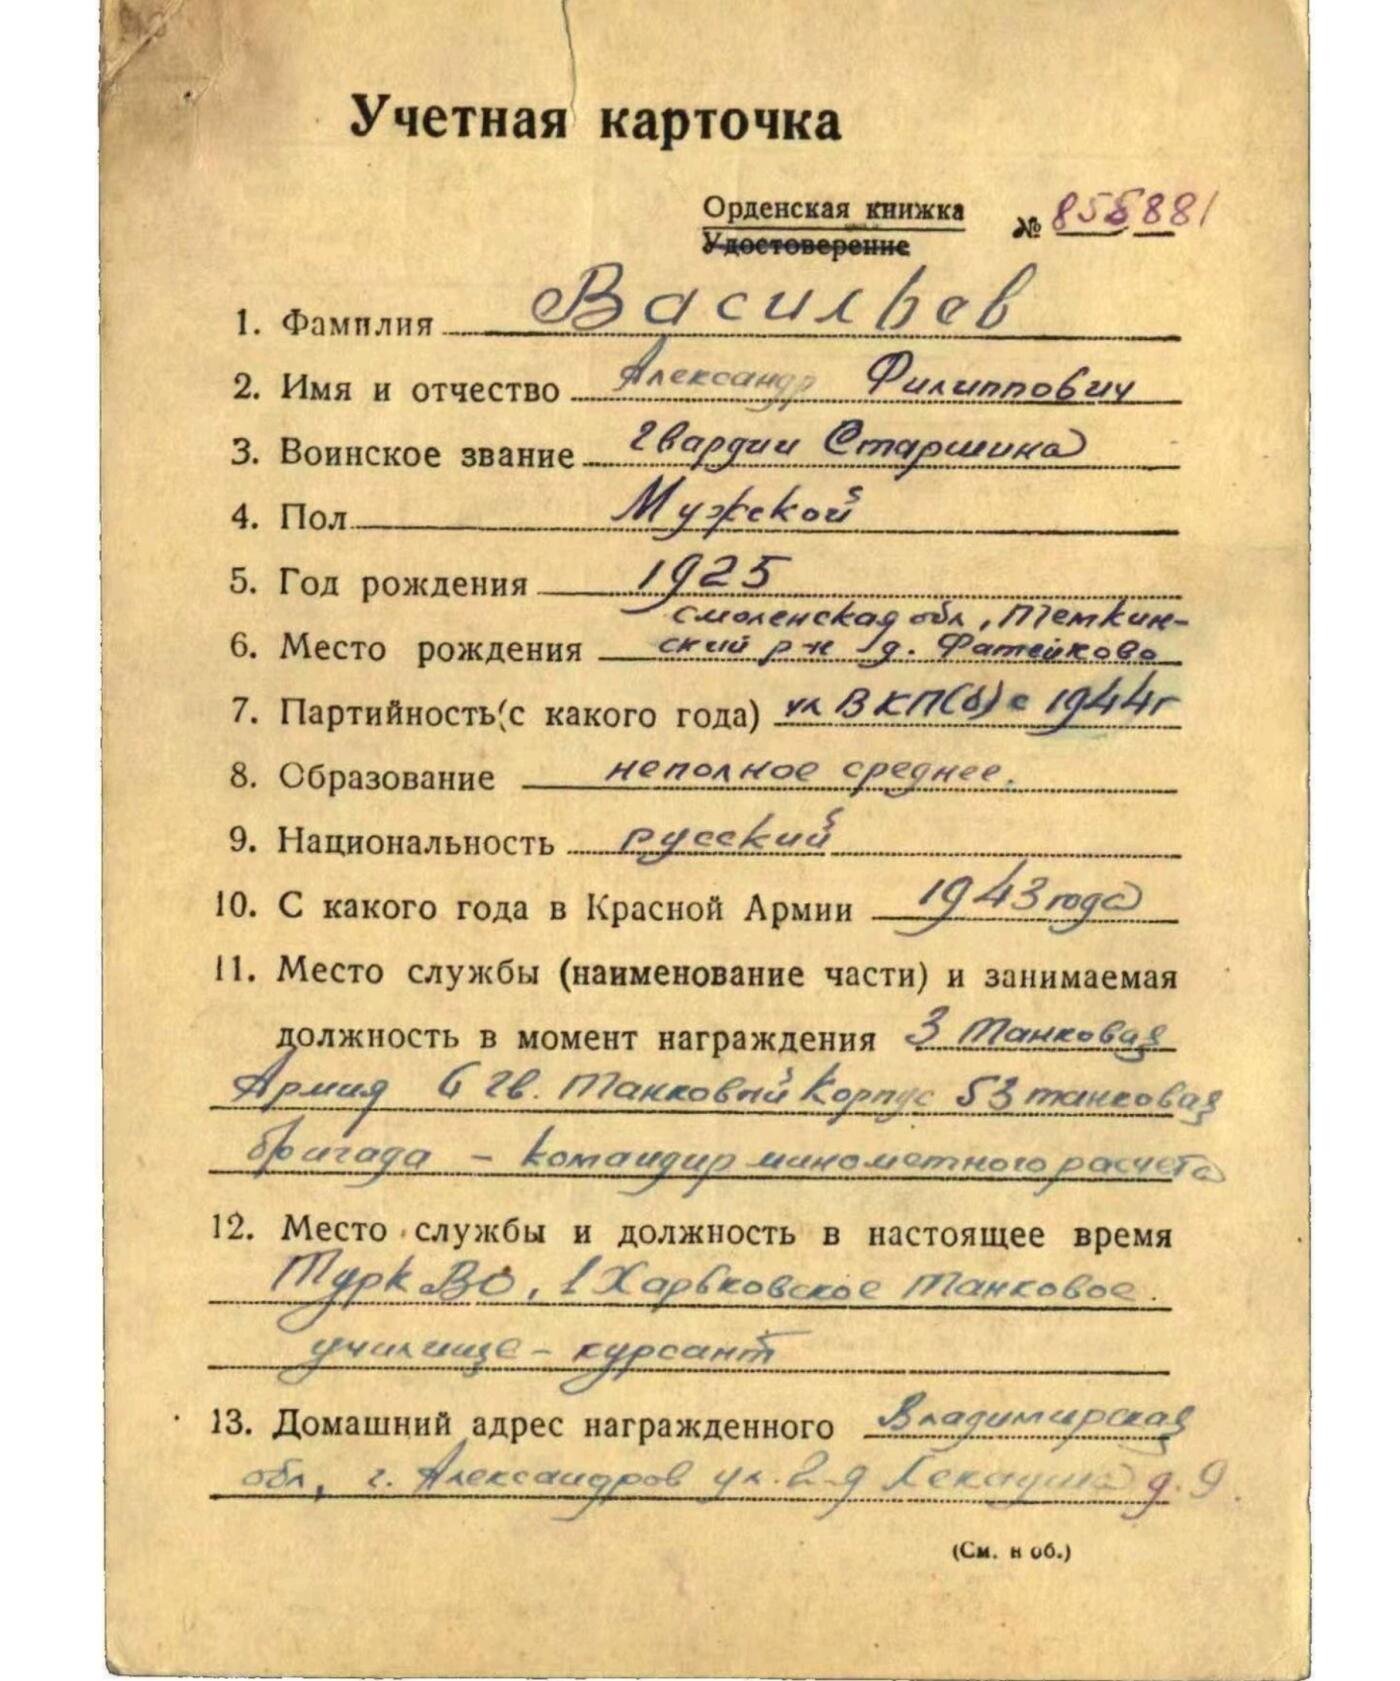 Учетная карточка
Орденская книжка
Удостоверение
№ 858881
1. Фамилия Васильев
2. Имя и отчество Александр Филиппович
3. Воинское звание гвардии Старшина
4. Пол Мужской
5. Год рождения 1925
смоленская обл, Темкин-
6. Место рождения ский р-н д. Фатейково
7. Партийность (с какого года) чл ВКП(б) с 1944г
8. Образование неполное среднее.
9. Национальность русский
10. С какого года в Красной Армии 1943 года
11. Место службы (наименование части) и занимаемая
должность в момент награждения 3 Танковая
Армия 6 гв. Танковый Корпус 53 танковая
бригада - командир минометного расчета
12. Место службы и должность в настоящее время
ТуркВО, 1 Харьковское Танковое
училище - курсант
13. Домашний адрес награжденного Владимирская
обл, г. Александров ул. 2-я д. 9
(См. н об.)